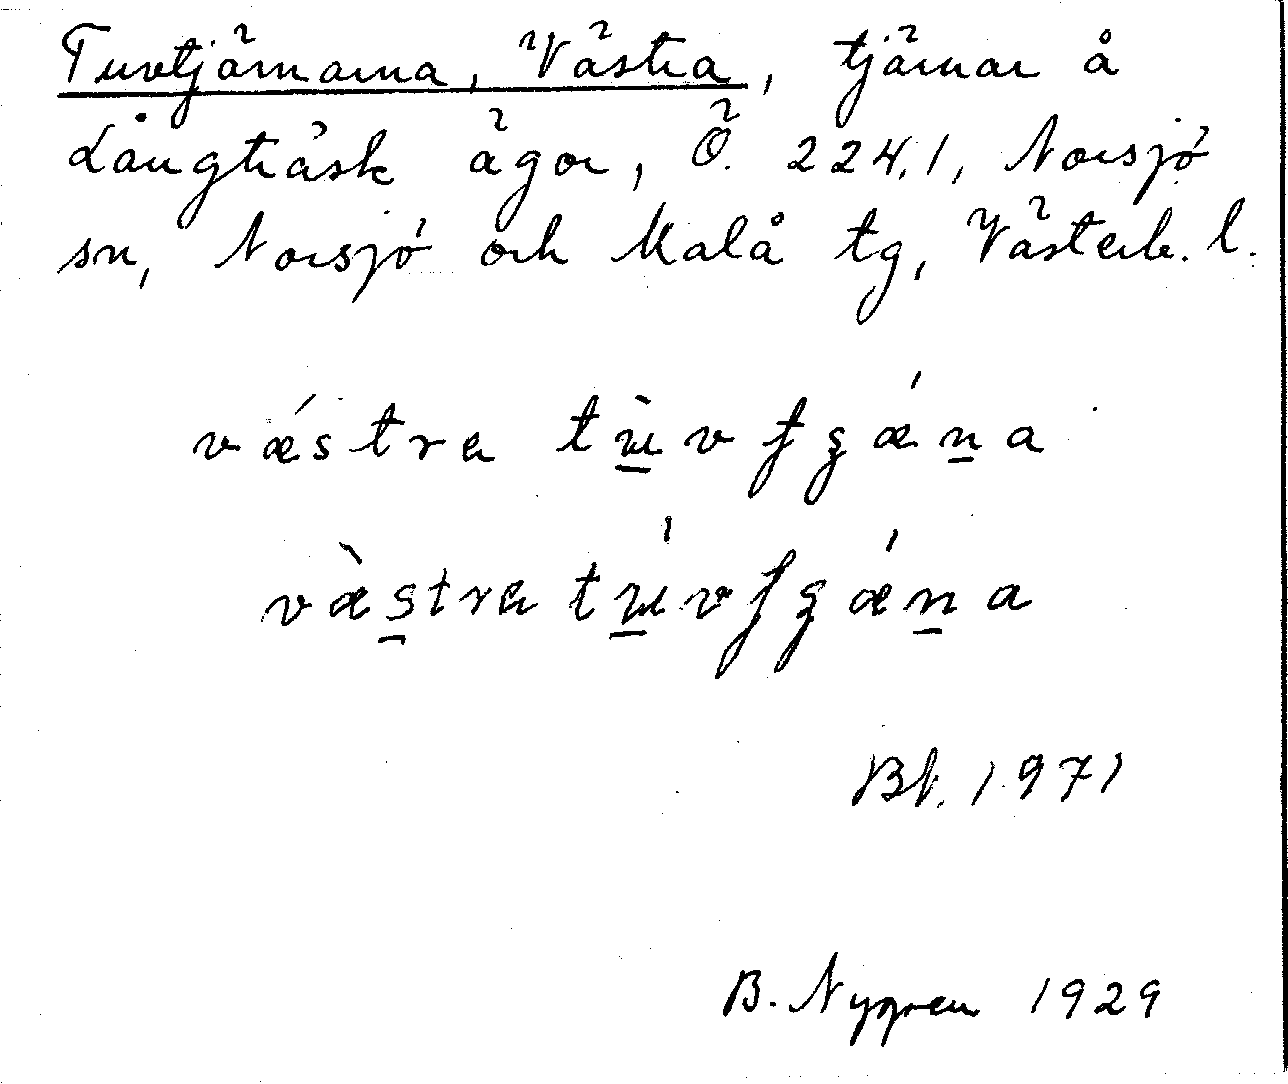 Tuvtjärnarna, Västra, tjärnar å
Långträsk ägor, Ö. 224,1, Norsjö
sn, Norsjö och Malå tg, Västerb. l.
væ´stra tù̲vʃʒæ´n̲a
væ̀s̲tra tú̲vʃʒæ´n̲a
Bl. 1971
B. Nygren 1929